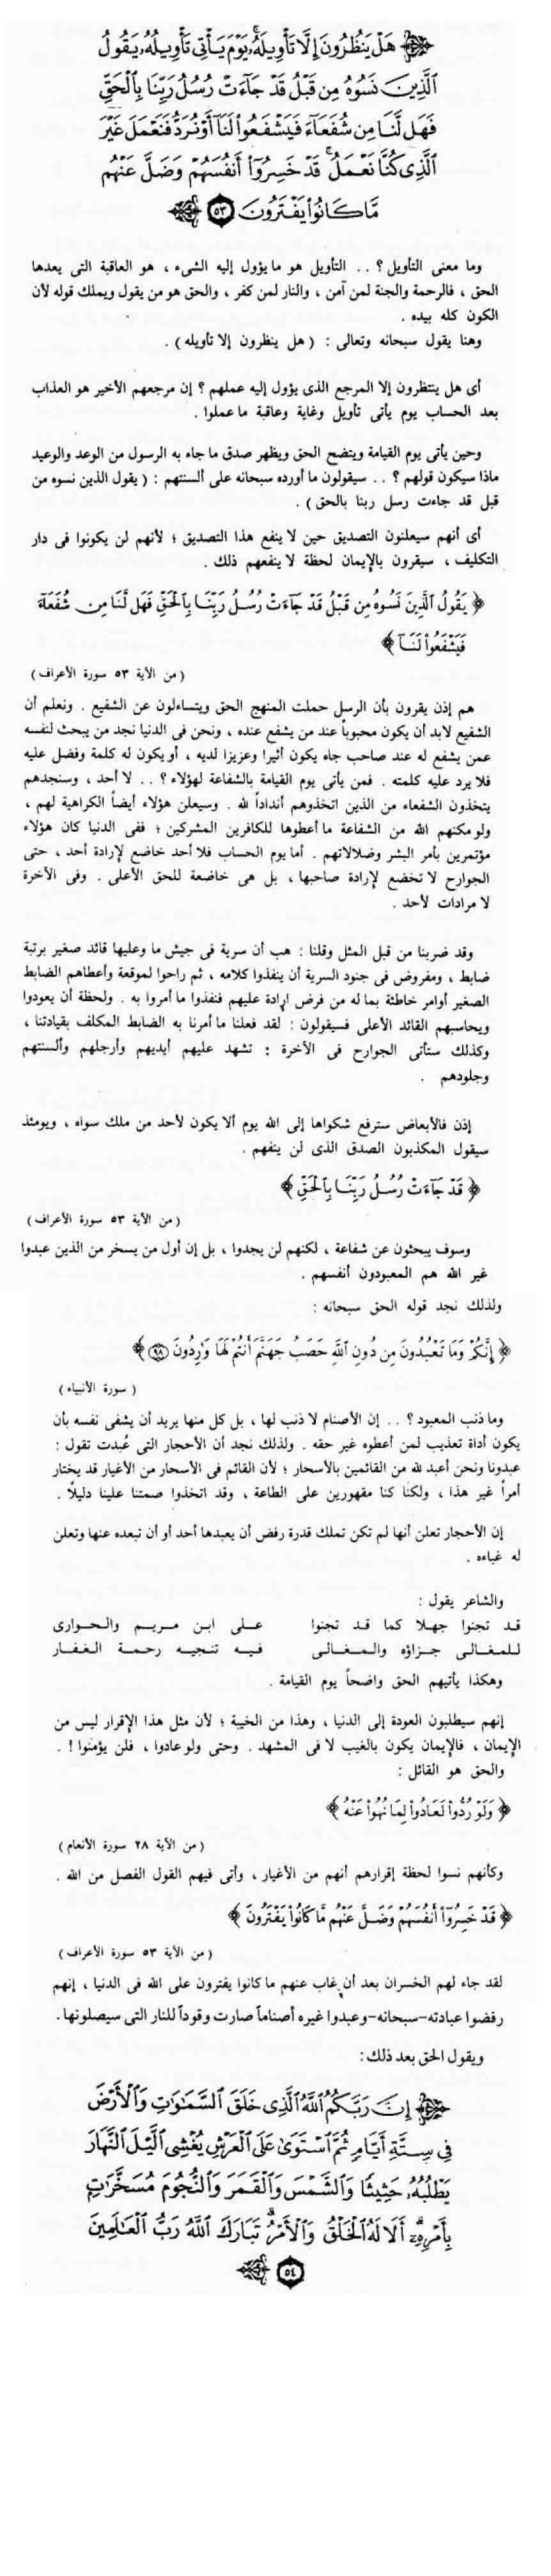 هَلْ يَنظُرُونَ إِلَّا تَأْوِيلَهُۥ يَوْمَ يَأْتِى تَأْوِيلُهُۥ يَقُولُ
ٱلَّذِينَ نَسُوهُ مِن قَبْلُ قَدْ جَآءَتْ رُسُلُ رَبِّنَا بِٱلْحَقِّ
فَهَل لَّنَا مِن شُفَعَآءَ فَيَشْفَعُوا۟ لَنَآ أَوْ نُرَدُّ فَنَعْمَلَ غَيْرَ
ٱلَّذِى كُنَّا نَعْمَلُ ۚ قَدْ خَسِرُوٓا۟ أَنفُسَهُمْ وَضَلَّ عَنْهُم
مَّا كَانُوا۟ يَفْتَرُونَ ٥٣
وما معنى التأويل ؟ . . التأويل هو ما يؤول إليه الشىء ، هو العاقبة التى يعدها
الحق ، فالرحمة والجنة لمن آمن ، والنار لمن كفر ، والحق هو من يقول ويملك قوله لأن
الكون كله بيده .
وهنا يقول سبحانه وتعالى : ( هل ينظرون إلا تأويله ) .
أى هل ينتظرون إلا المرجع الذى يؤول إليه عملهم ؟ إن مرجعهم الأخير هو العذاب
بعد الحساب يوم يأتى تأويل وغاية وعاقبة ما عملوا .
وحين يأتى يوم القيامة ويتضح الحق ويظهر صدق ما جاء به الرسول من الوعد والوعيد
ماذا سيكون قولهم ؟ . . سيقولون ما أورده سبحانه على ألسنتهم : ( يقول الذين نسوه من
قبل قد جاءت رسل ربنا بالحق ) .
أى أنهم سيعلنون التصديق حين لا ينفع هذا التصديق ؛ لأنهم لن يكونوا فى دار
التكليف ، سيقرون بالإيمان لحظة لا ينفعهم ذلك .
﴿ يَقُولُ ٱلَّذِينَ نَسُوهُ مِن قَبْلُ قَدْ جَآءَتْ رُسُلُ رَبِّنَا بِٱلْحَقِّ فَهَل لَّنَا مِن شُفَعَآءَ
فَيَشْفَعُوا۟ لَنَآ ﴾
( من الآية ٥٣ سورة الأعراف )
هم إذن يقرون بأن الرسل حملت المنهج الحق ويتساءلون عن الشفيع . ونعلم أن
الشفيع لابد أن يكون محبوباً عند من يشفع عنده ، ونحن فى الدنيا نجد من يبحث لنفسه
عمن يشفع له عند صاحب جاه يكون أثيرا وعزيزا لديه ، أو يكون له كلمة وفضل عليه
فلا يرد عليه كلمته . فمن يأتى يوم القيامة بالشفاعة لهؤلاء ؟ . . لا أحد ، وسنجدهم
يتخذون الشفعاء من الذين اتخذوهم أنداداً لله . وسيعلن هؤلاء أيضاً الكراهية لهم ،
ولو مكنهم الله من الشفاعة ما أعطوها للكافرين المشركين ؛ ففى الدنيا كان هؤلاء
مؤتمرين بأمر البشر وضلالاتهم . أما يوم الحساب فلا أحد خاضع لإرادة أحد ، حتى
الجوارح لا تخضع لإرادة صاحبها ، بل هى خاضعة للحق الأعلى . وفى الآخرة
لا مرادات لأحد .
وقد ضربنا من قبل المثل وقلنا : هب أن سرية فى جيش ما وعليها قائد صغير برتبة
ضابط ، ومفروض فى جنود السرية أن ينفذوا كلامه ، ثم راحوا لموقعة وأعطاهم الضابط
الصغير أوامر خاطئة بما له من فرض إرادة عليهم فنفذوا ما أمروا به . ولحظة أن يعودوا
ويحاسبهم القائد الأعلى فسيقولون : لقد فعلنا ما أمرنا به الضابط المكلف بقيادتنا ،
وكذلك ستأتى الجوارح فى الآخرة : تشهد عليهم أيديهم وأرجلهم وألسنتهم
وجلودهم .
إذن فالأبعاض سترفع شكواها إلى الله يوم ألا يكون لأحد من ملك سواه ، ويومئذ
سيقول المكذبون الصدق الذى لن ينفهم .
﴿ قَدْ جَآءَتْ رُسُلُ رَبِّنَا بِٱلْحَقِّ ﴾
( من الآية ٥٣ سورة الأعراف )
وسوف يبحثون عن شفاعة ، لكنهم لن يجدوا ، بل إن أول من يسخر من الذين عبدوا
غير الله هم المعبودون أنفسهم .
ولذلك نجد قوله الحق سبحانه :
﴿ إِنَّكُمْ وَمَا تَعْبُدُونَ مِن دُونِ ٱللَّهِ حَصَبُ جَهَنَّمَ أَنتُمْ لَهَا وَٰرِدُونَ ٩٨ ﴾
( سورة الأنبياء )
وما ذنب المعبود ؟ . . إن الأصنام لا ذنب لها ، بل كل منها يريد أن يشفى نفسه بأن
يكون أداة تعذيب لمن أعطوه غير حقه . ولذلك نجد أن الأحجار التى عُبدت تقول :
عبدونا ونحن أعبد لله من القائمين بالأسحار ؛ لأن القائم فى الأسحار من الأغيار قد يختار
أمراً غير هذا ، ولكنا كنا مقهورين على الطاعة ، وقد اتخذوا صمتنا علينا دليلًا .
إن الأحجار تعلن أنها لم تكن تملك قدرة رفض أن يعبدها أحد أو أن تبعده عنها وتعلن
له غباءه .
والشاعر يقول :
قد تجنوا جهلا كما قد تجنوا على ابن مريم والحوارى
للمغالى جزاؤه والمغالى فيه تنجيه رحمة الغفار
وهكذا يأتيهم الحق واضحاً يوم القيامة .
إنهم سيطلبون العودة إلى الدنيا ، وهذا من الخيبة ؛ لأن مثل هذا الإقرار ليس من
الإيمان ، فالإيمان يكون بالغيب لا فى المشهد . وحتى ولو عادوا ، فلن يؤمنوا ! .
والحق هو القائل :
﴿ وَلَوْ رُدُّوا۟ لَعَادُوا۟ لِمَا نُهُوا۟ عَنْهُ ﴾
( من الآية ٢٨ سورة الأنعام )
وكأنهم نسوا لحظة إقرارهم أنهم من الأغيار ، وأتى فيهم القول الفصل من الله .
﴿ قَدْ خَسِرُوٓا۟ أَنفُسَهُمْ وَضَلَّ عَنْهُم مَّا كَانُوا۟ يَفْتَرُونَ ﴾
( من الآية ٥٣ سورة الأعراف )
لقد جاء لهم الخسران بعد أن غاب عنهم ما كانوا يفترون على الله فى الدنيا ، إنهم
رفضوا عبادته -سبحانه- وعبدوا غيره أصناماً صارت وقوداً للنار التى سيصلونها .
ويقول الحق بعد ذلك :
إِنَّ رَبَّكُمُ ٱللَّهُ ٱلَّذِى خَلَقَ ٱلسَّمَٰوَٰتِ وَٱلْأَرْضَ
فِى سِتَّةِ أَيَّامٍ ثُمَّ ٱسْتَوَىٰ عَلَى ٱلْعَرْشِ يُغْشِى ٱلَّيْلَ ٱلنَّهَارَ
يَطْلُبُهُۥ حَثِيثًا وَٱلشَّمْسَ وَٱلْقَمَرَ وَٱلنُّجُومَ مُسَخَّرَٰتٍۭ
بِأَمْرِهِۦٓ ۗ أَلَا لَهُ ٱلْخَلْقُ وَٱلْأَمْرُ ۗ تَبَارَكَ ٱللَّهُ رَبُّ ٱلْعَٰلَمِينَ
٥٤